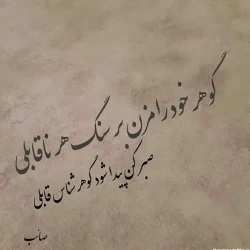 گوهر خود را مزن بر سنگ هر ناقابلی
صبر کن پیدا شود گوهر شناس قابلی
صائب